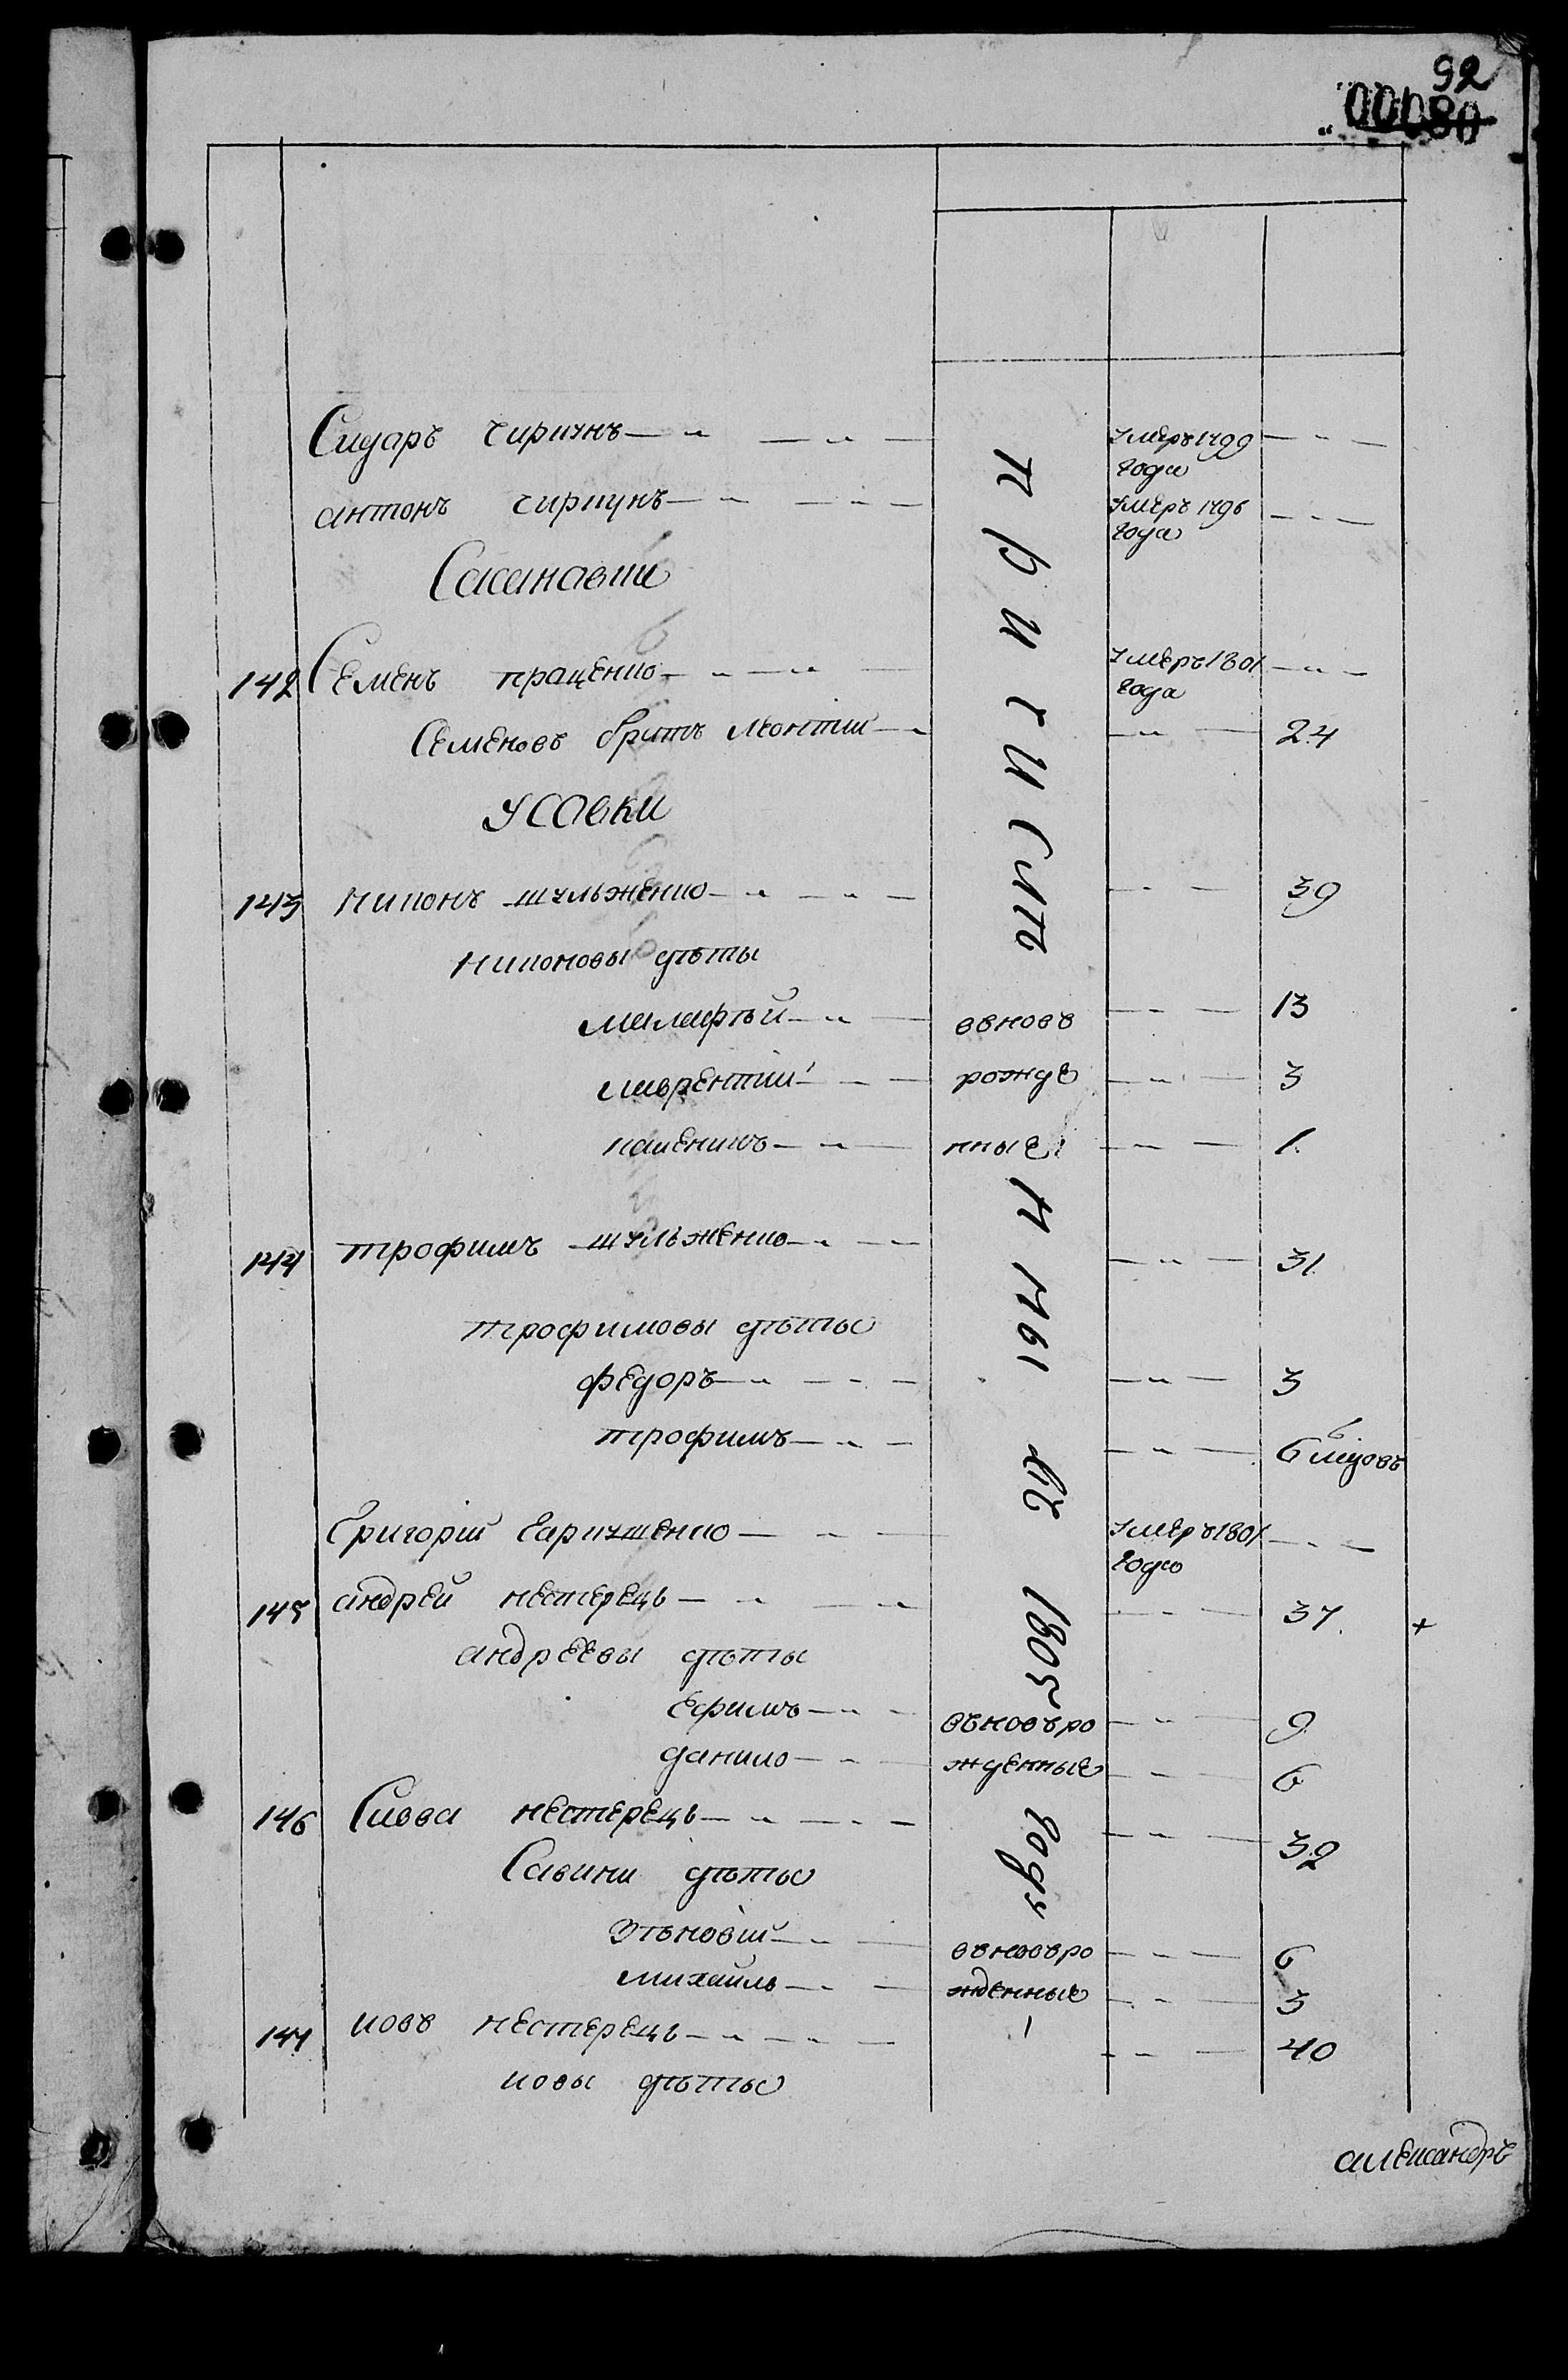 92
00080
Сидаръ чирчунъ умеръ 1799
года
антонъ чирчунъ умеръ 1796
года
Сасиновки
142 Семенъ пращенко умеръ 1801
года
Семеновъ братъ Леонтии 24
Усовки
143 Никонъ шульженко 39
Никоновы дѣты
Малафѣй вѣновѣ 13
Лаврентии рожде 3
нные 1
144 трофимъ шульженко 31
трофимовы дѣты
федоръ 3
трофимъ 6 мцовъ
Григорій гаркушенко умеръ 1801
года
145 андрей нестерецъ 37 +
андреевы дѣты
Ефимъ вѣновъро 9
данило жденные 6
146 Савва нестерецъ 32
Савини дѣты
Зѣновіи вѣновъро 6
Михаилъ жденные 3
147 иовъ нестерецъ 40
иовы дѣты
1805 году
александръ